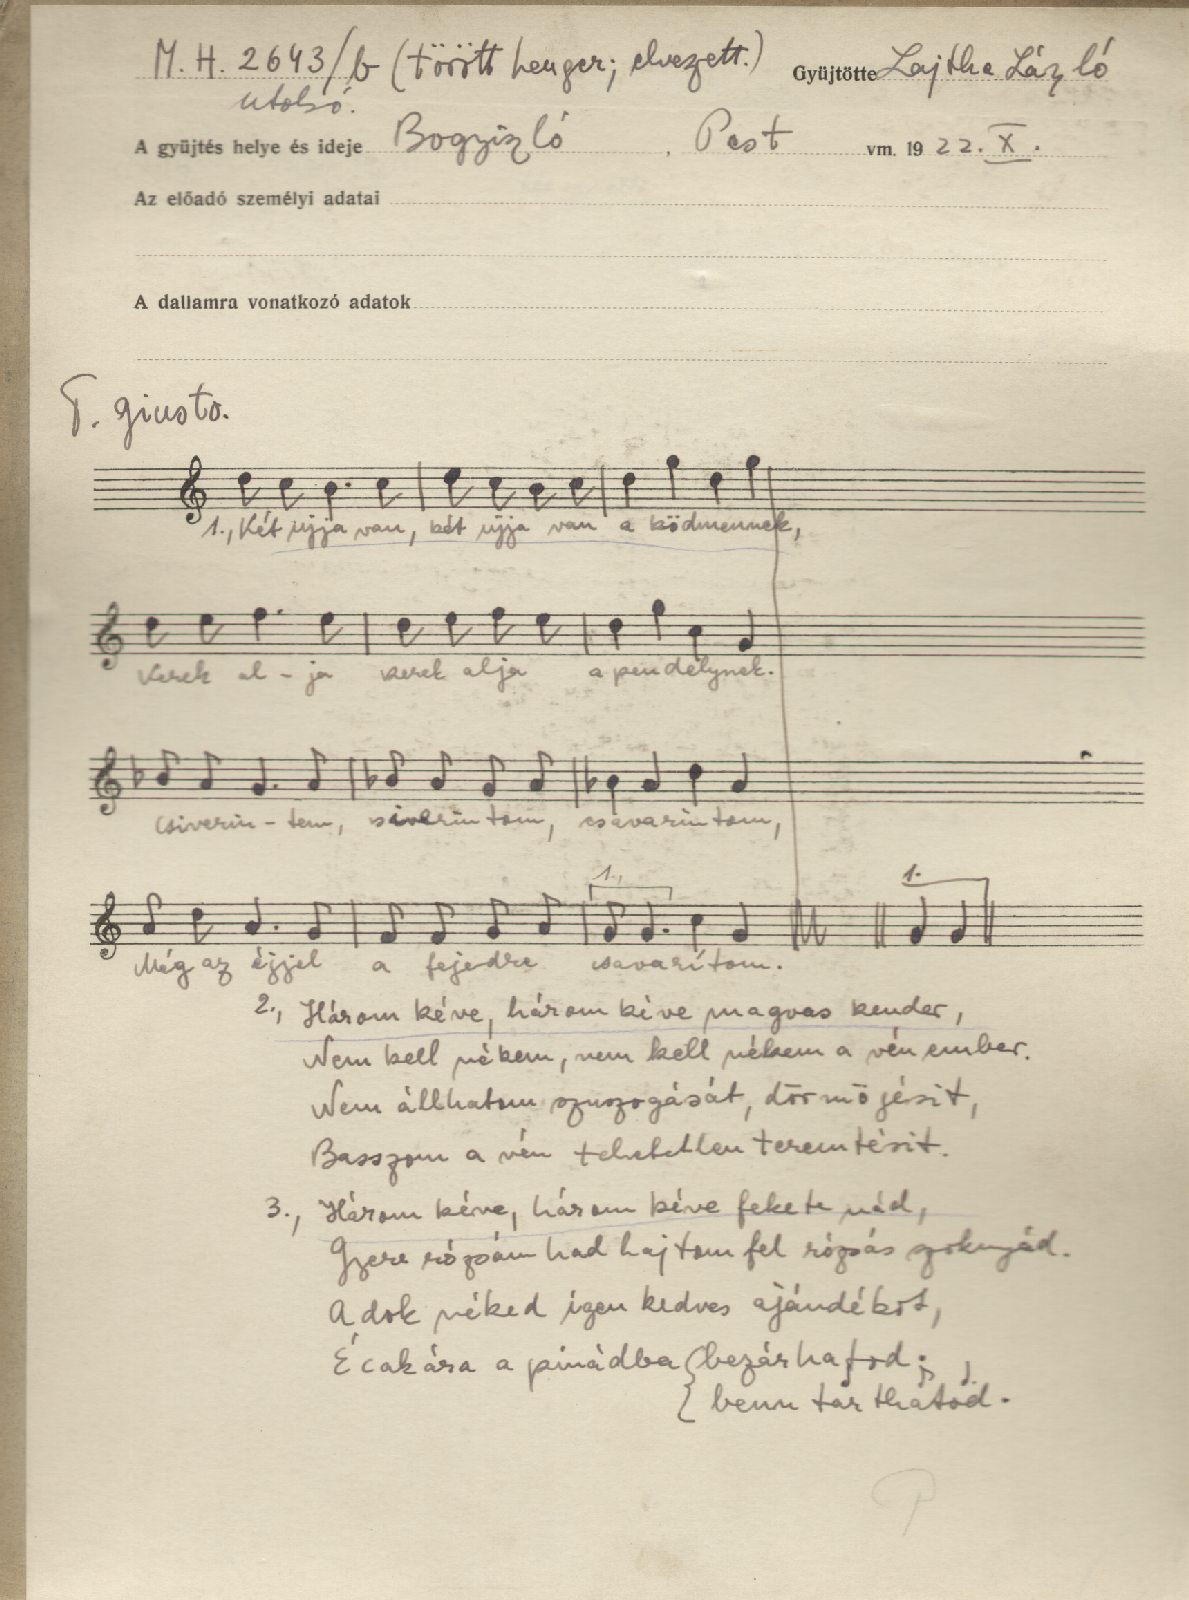 M. H. 2643/b (törött henger; elveszett.) Gyüjtötte Lajtha László
utolsó.
A gyüjtés helye és ideje Bogyiszló, Pest vm. 1922. X.
Az előadó személyi adatai
A dallamra vonatkozó adatok
T. giusto.
1., Két ujja van, két ujja van a ködmennek,
Kerek al-ja kerek alja a pendelynek.
csiverin-tem, csavarintom,
1.,
1.
Még az éjjel a fejedre csavarítom.
2., Három kéve, három kéve magvas kender,
Nem kell nékem, nem kell nékem a vén ember.
Nem állhatom szuszogását, dörmögésit,
Basszom a vén tehetetlen teremtésit.
3., Három kéve, három kéve fekete nád,
Gyere rózsám had hajtom fel rózsás szoknyád.
Adok néked igen kedves ajándékot,
Écakára a pinádba { bezárhatod;
{ benn tarthatod.